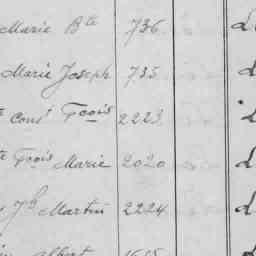 Marie Bte 736
Marie Joseph 735
Const Fçois 2223
te Fçois Marie 2020
Jh Martin 2224
Albert